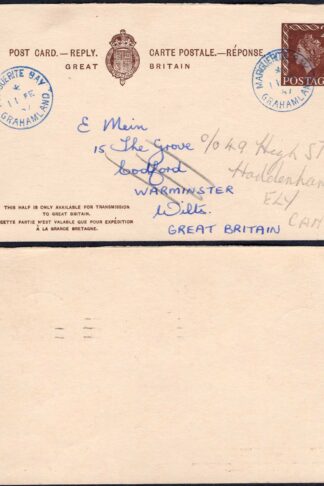 POST CARD.—REPLY. CARTE POSTALE.—RÉPONSE.
GREAT BRITAIN
POSTAG
MARGUERITE BAY
11 FE
GRAHAMLAND
MARGUERITE BAY
11
GRAHAMLAND
E Mein
15 The Grove
Codford
WARMINSTER
Wilts.
GREAT BRITAIN
c/o 49 High St
Haddenham
ELY
CAM
THIS HALF IS ONLY AVAILABLE FOR TRANSMISSION
TO GREAT BRITAIN.
CETTE PARTIE N'EST VALABLE QUE POUR EXPÉDITION
À LA GRANDE BRETAGNE.